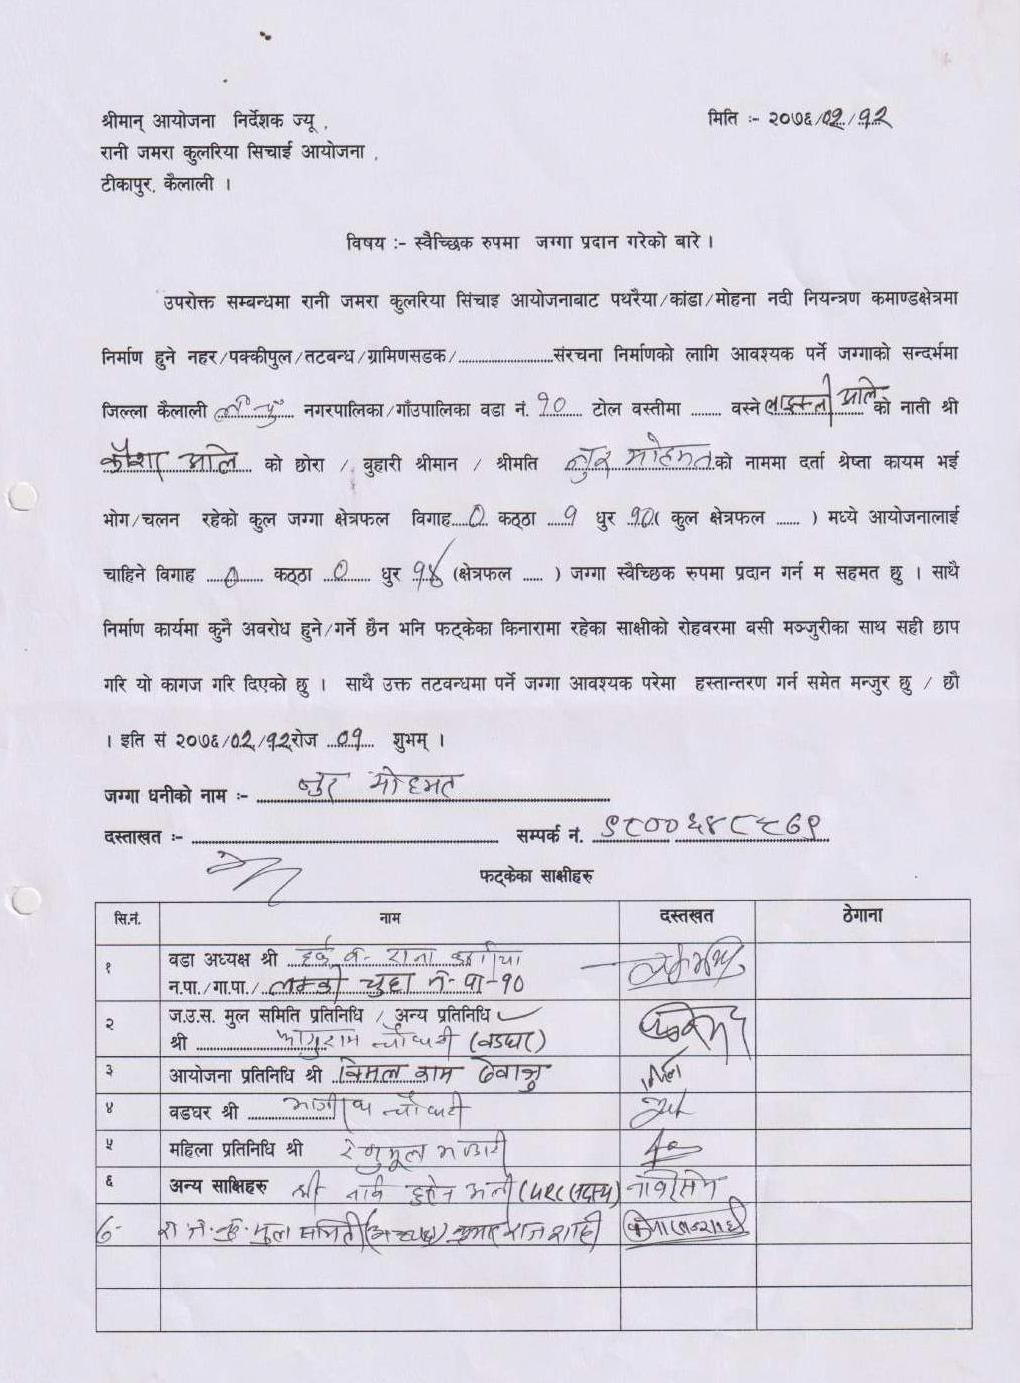 श्रीमान् आयोजना निर्देशक ज्यू , मिति :- २०७६/०२/१२
रानी जमरा कुलरिया सिचाई आयोजना ,
टीकापुर, कैलाली ।
विषय :- स्वैच्छिक रुपमा जग्गा प्रदान गरेको बारे ।
उपरोक्त सम्बन्धमा रानी जमरा कुलरिया सिंचाइ आयोजनाबाट पथरैया/कांडा/मोहना नदी नियन्त्रण कमाण्डक्षेत्रमा
निर्माण हुने नहर/पक्कीपुल/तटबन्ध/ग्रामिणसडक/........................संरचना निर्माणको लागि आवश्यक पर्ने जग्गाको सन्दर्भमा
जिल्ला कैलाली नगरपालिका/गाँउपालिका वडा नं. १० टोल वस्तीमा ........ वस्ने को नाती श्री
को छोरा / बुहारी श्रीमान / श्रीमति नुर मोहमत को नाममा दर्ता श्रेष्ता कायम भई
भोग/चलन रहेको कुल जग्गा क्षेत्रफल विगाह ० कठ्ठा १ धुर १०( कुल क्षेत्रफल ...... ) मध्ये आयोजनालाई
चाहिने विगाह ० कठ्ठा ० धुर १४ (क्षेत्रफल ..... ) जग्गा स्वैच्छिक रुपमा प्रदान गर्न म सहमत छु । साथै
निर्माण कार्यमा कुनै अवरोध हुने/गर्ने छैन भनि फट्केका किनारामा रहेका साक्षीको रोहवरमा वसी मञ्जुरीका साथ सही छाप
गरि यो कागज गरि दिएको छु । साथै उक्त तटवन्धमा पर्ने जग्गा आवश्यक परेमा हस्तान्तरण गर्न समेत मन्जुर छु / छौ
। इति सं २०७६/०२/१२ रोज ०१ शुभम् ।
जग्गा धनीको नाम :- नुर मोहमत
दस्ताखत :- सम्पर्क नं. ९८००६४८८७१
फट्केका साक्षीहरु
सि.नं. नाम दस्तखत ठेगाना
१ वडा अध्यक्ष श्री
न.पा./गा.पा./ लम्की चुहा न-पा-१०
२ ज.उ.स. मुल समिति प्रतिनिधि / अन्य प्रतिनिधि
श्री फागुराम चौधरी (वडघर)
३ आयोजना प्रतिनिधि श्री विमल राम
४ वडघर श्री चौधरी
५ महिला प्रतिनिधि श्री
६ अन्य साक्षिहरु श्री
७- मुल समिति (अध्यक्ष) राज शाही